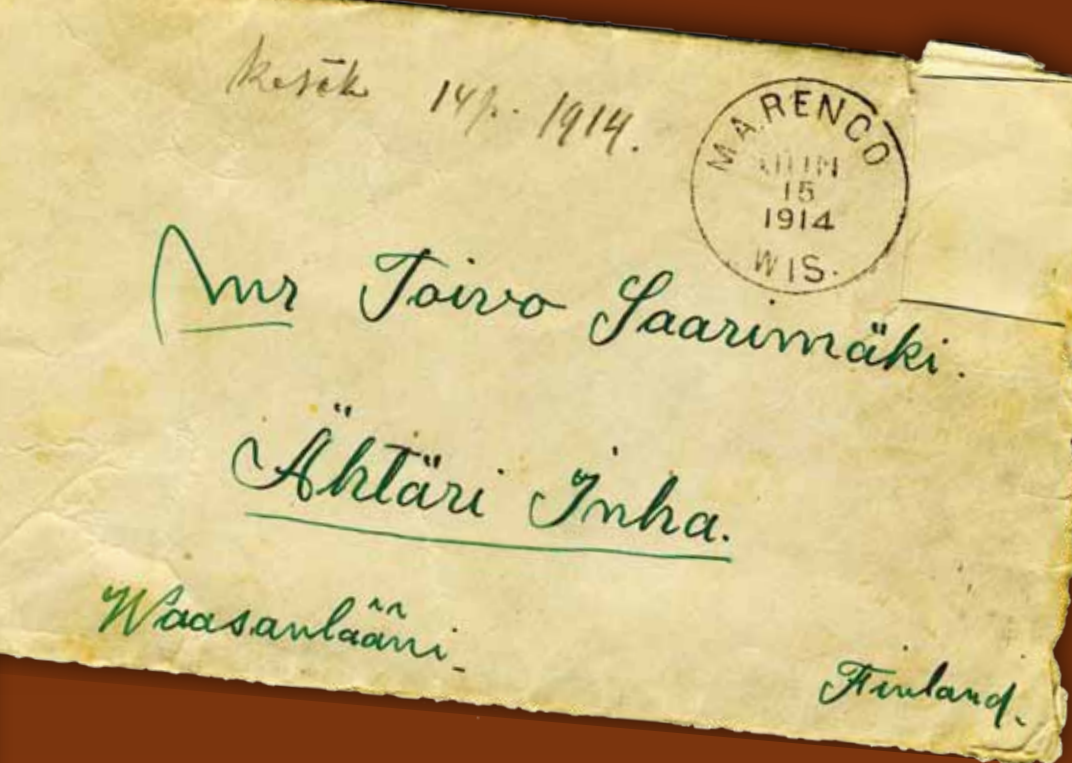 kesäk 14p. 1914.
MARENGO
JUN
15
1914
WIS.
mr Toivo Saarimäki.
Ähtäri Inha.
Waasanlääni
Finland.